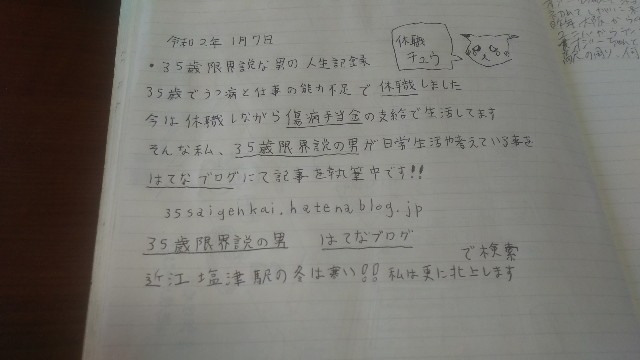 令和2年 1月7日
休職
チュウ
・35歳限界説な男の人生記録
35歳でうつ病と仕事の能力不足で休職しました
今は休職しながら傷病手当金の支給で生活してます
そんな私、35歳限界説の男が日常生活や考えている事を
はてなブログにて記事を執筆中です!!
35saigenkai.hatenablog.jp
35歳限界説の男 はてなブログ
で検索
近江塩津駅の冬は寒い!! 私は更に北上します